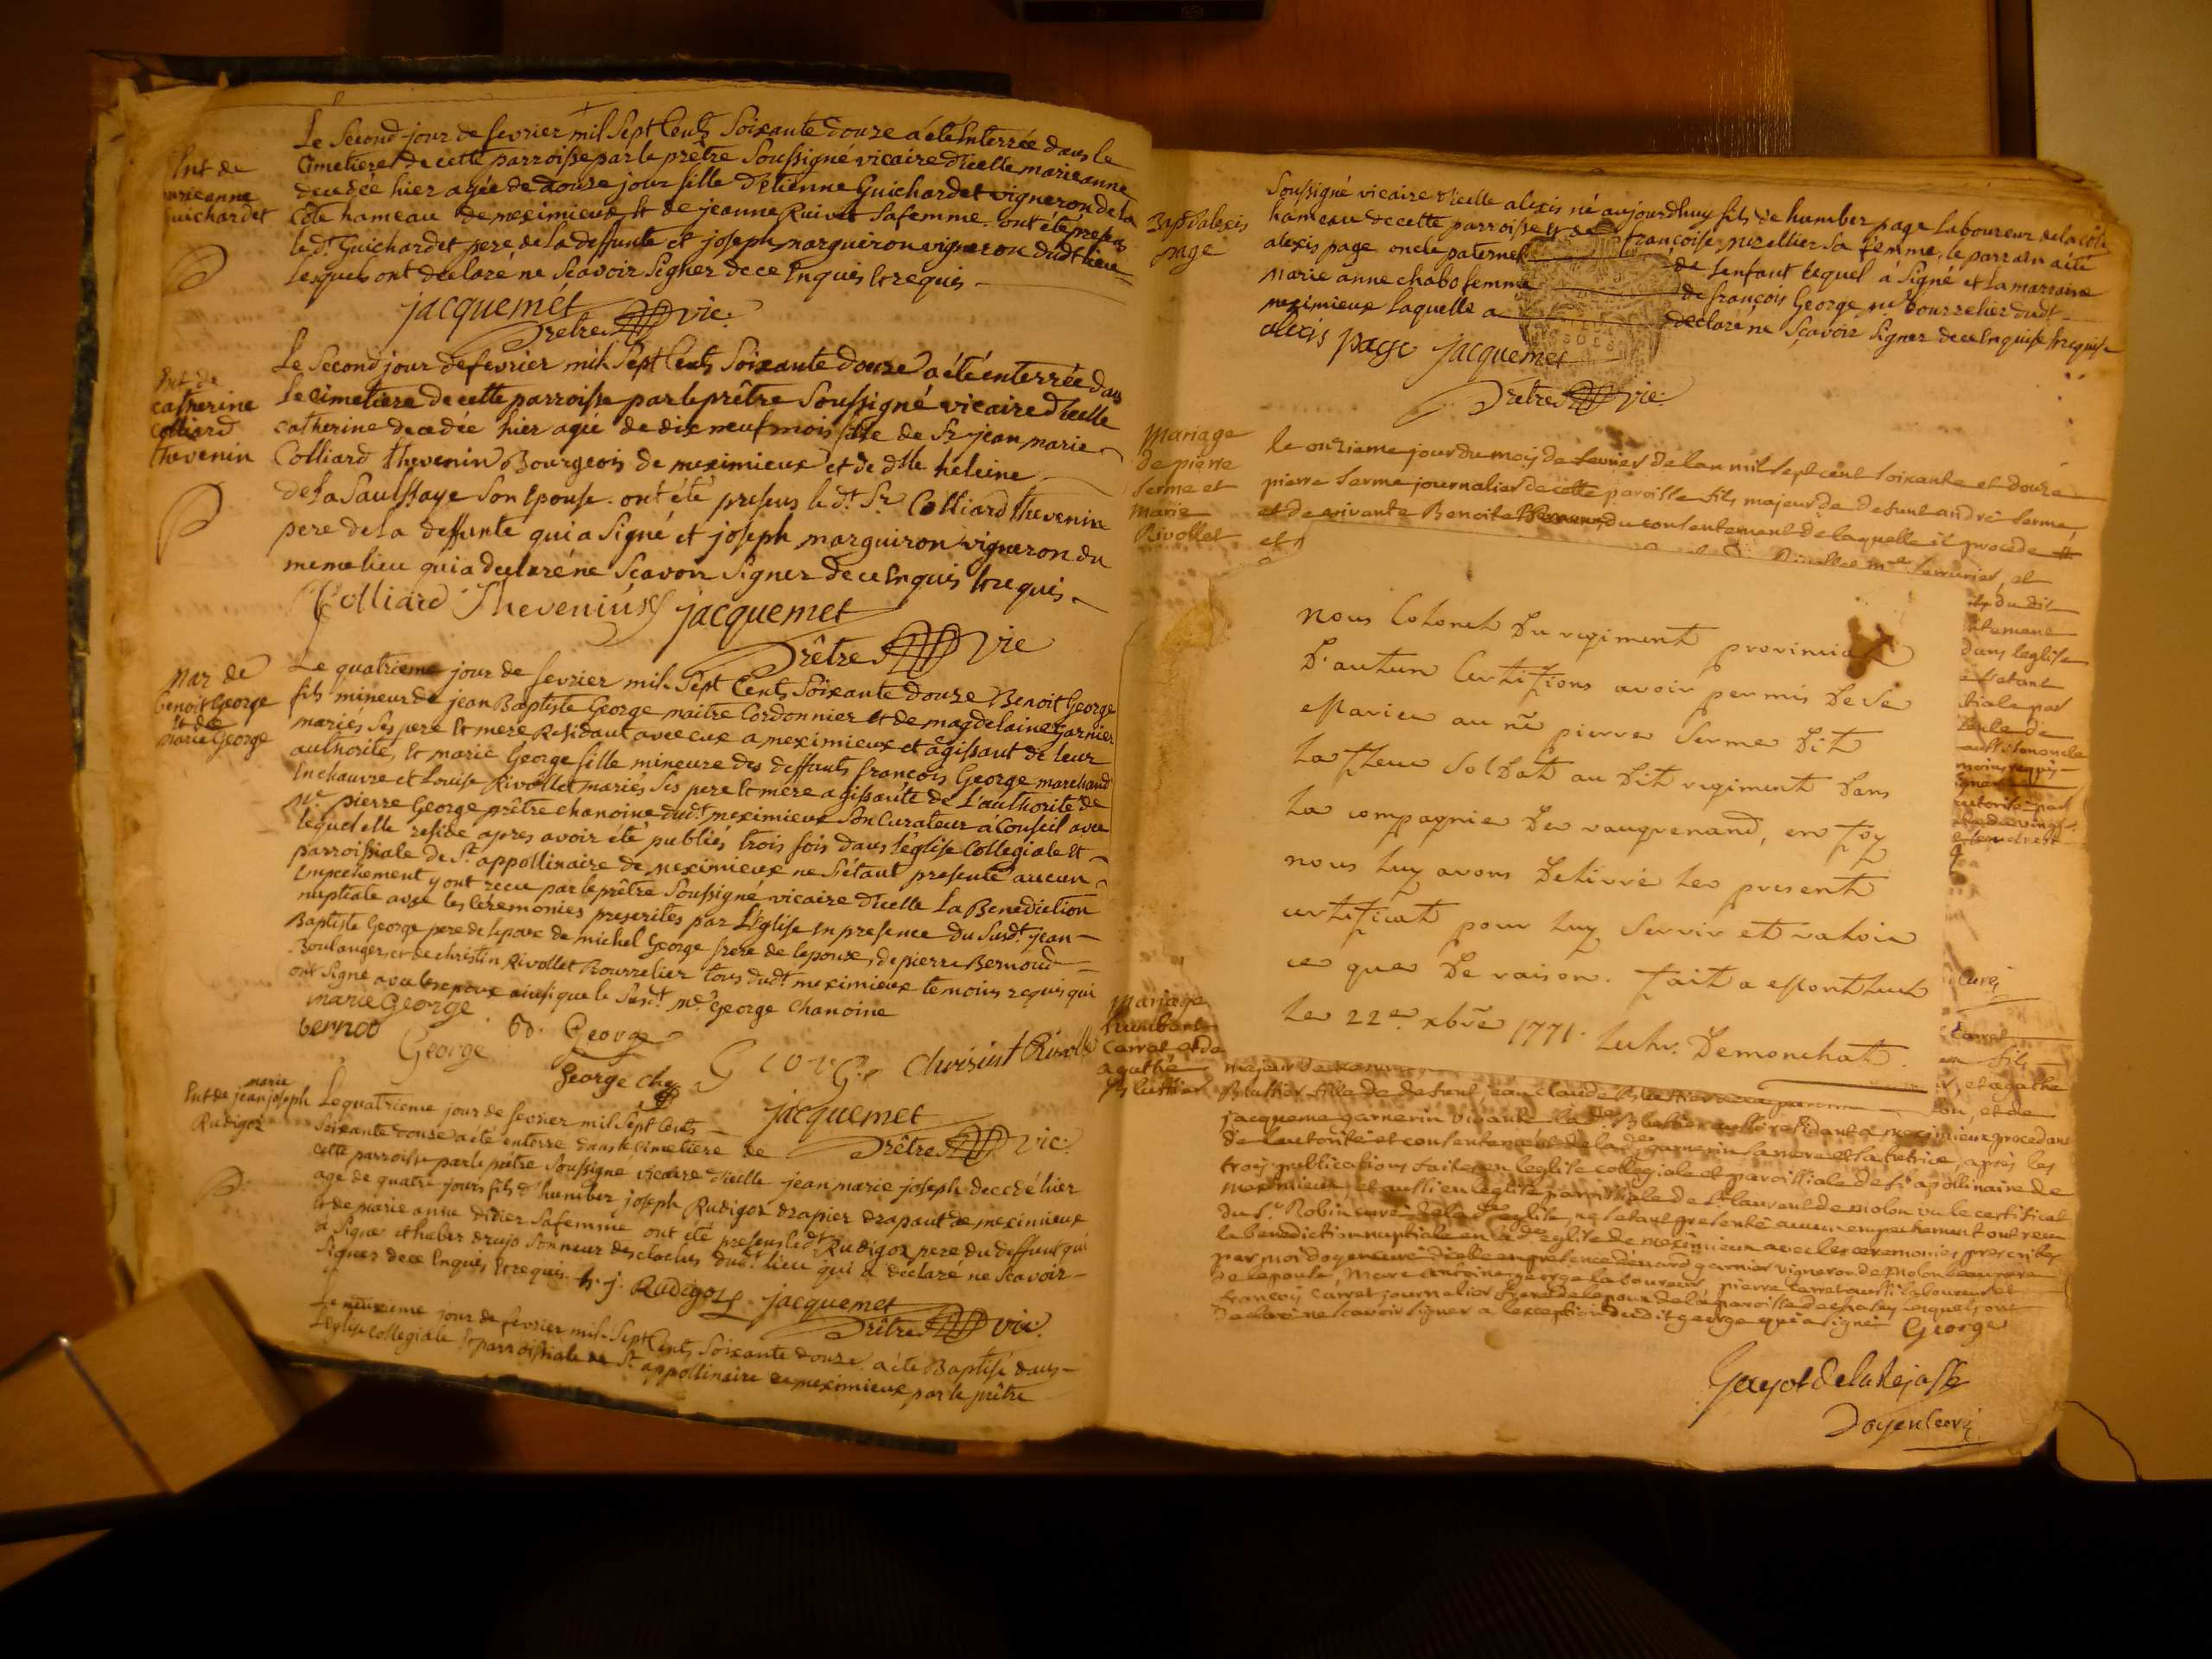 Le Second jour de fevrier mil Sept Cents Soixante douze a été Enterrée dans le
Cimetiere de cette parroisse par le prêtre Soussigné vicaire d'icelle marieanne
decedée hier agée de douze jour fille d'Etienne Guichardet vigneron de la
Côte hameau de meximieux Et de jeanne Ruivet Sa femme. ont été presents
le dt Guichardet pere de la deffunte et joseph marguiron vigneron dudt lieu
lesquels ont declaré ne Scavoir Signer de ce Enquis Et requis
Ent de
marieanne
Guichardet
jacquemet
Prêtre vic:
Le Second jour de fevrier mil Sept Cents Soixante douze a été enterrée dans
Le cimetiere de cette parroisse par le prêtre Soussigné vicaire d'icelle
catherine decedée hier agée de dix neuf mois fille de Sr jean marie
Colliard thevenin Bourgeois de meximieux et de dlle heleine
de la Saulssaye Son Epouse. ont été presens le dt Sr Colliard thevenin
pere de la deffunte qui a Signé et joseph marguiron vigneron du
meme lieu qui a declaré ne Scavoir Signer de ce Enquis Et requis
Ent de
catherine
Colliard
thevenin
Colliard Thevenin jacquemet
Prêtre vic
Le quatrieme jour de fevrier mil Sept Cents Soixante douze Benoit George
fils mineur de jean Baptiste George maitre Cordonnier et de magdelaine Garnier
mariés Ses pere Et mere Residant avec eux a meximieux et agissant de leur
authorité, Et marie George fille mineure des deffunts françois George marchand
En chanvre et Louise Rivollet mariés, Ses pere Et mere agissante de L'authorité de
Mre pierre George prêtre chanoine dudt meximieux Son Curateur à Conseil avec
lequel elle reside apres avoir été publiés trois fois dans l'église Collegiale Et
parroissiale de St appollinaire de meximieux ne S'étant presenté aucun
Empechement y ont reçu par le prêtre Soussigné vicaire d'icelle La Benediction
nuptiale avec les Ceremonies prescrites par L'Eglise En presence du Susdt jean
Baptiste George pere de lepoux de michel George frere de lepoux, de pierre Bernoud
Boulanger, et de christin Rivollet Bourrelier tous dudt meximieux temoins requis qui
ont Signé avec les epoux ainsi que le Susdt mre George Chanoine
Mar de
benoit George
Et de
marie George
marie George
bernod George bd. George
George che George christint Rivollet
jacquemet
Prêtre vic:
Ent de jean marie joseph
Rudigoz
Le quatrieme jour de fevrier mil Sept Cents
Soixante douze a été enterré dans le cimetiere de
cette parroisse par le prêtre Soussigné vicaire d'icelle jean marie joseph decedé hier
agé de quatre jours fils d'humber joseph Rudigoz drapier drapant de meximieux
Et de marie anne didier Sa femme ont été presens ledt Rudigoz pere du deffunt qui
a Signé et huber drujo Sonneur des cloches dudt lieu qui a declaré ne Scavoir
Signer de ce Enquis Et requis. h. j. Rudigoz jacquemet
Prêtre vic.
Le neuvieme jour de fevrier mil Sept Cents Soixante douze a été Baptisé dans
L'Eglise Collegiale Et parroissiale de St appollinaire de meximieux par le prêtre
Bapt d'alexis
page
Soussigné vicaire d'icelle alexis né aujourdhuy fils de humber page Laboureur de la côte
hameau de cette parroisse et de françoise pezellier Sa femme, le parrain a été
alexis page oncle paternel de Lenfant lequel a Signé et la marraine
Marie anne chabo femme de françois George me bourrelier dudt
meximieux Laquelle a declaré ne Scavoir Signer de ce Enquise Et requise
alexis page jacquemet
Prêtre vic:
Mariage
de pierre
Serme et
Marie
Rivollet
le onzieme jour du mois de fevrier de lan mil sept cent soixante et douze
pierre Serme journalier de cette paroisse fils majeur de defunt andré Serme,
et de vivante Benoite du consentement de laquelle il procede
et
Rivollet me Serrurier, et
nous Colonel Du regiment provincial
D'autun Certifions avoir permis De Se
Marier au né pierre Serme Dit
La fleur Soldat au Dit regiment Dans
La compagnie De vauquenand, en foy
nous Luy avons Delivré Le present
certificat pour Luy Servir et valoir
ce que De raison. fait a Montluel
Le 22e xbre 1771. Demonchat.
du dit
dans leglise
Curé
Mariage
humbert
Carret et de
agathe
Blattier
Carret
fils
et agathe
Blattier fille de defunt jean Claude Blattier
jacqueme garnerin vivante la de Blattier residant a meximieux procedant
de lautorité et consentement de la de garnerin sa mere et sa tutrice, après les
trois publications faites en leglise collegiale et paroissiale de St apolinaire de
meximieux, et aussi en leglise paroissiale de St laurant de molon vu le certificat
du Sr Robin curé de la de eglise, ne setant presenté aucun empechement ont reçu
la benediction nuptiale en la de eglise de meximieux avec les ceremonies prescrites
par moi doyen curé d'icelle en presence d'enard garnier vigneron de molon beau frere
de lepouse, Marc antoine george laboureur, pierre Carret aussi laboureur et
françois Carret journalier frere de lepoux de la paroisse de chasey lesquels ont
declaré ne scavoir signer a lexception dudit george qui a signé George
Gayot de la Rejasse
Doyen Curé